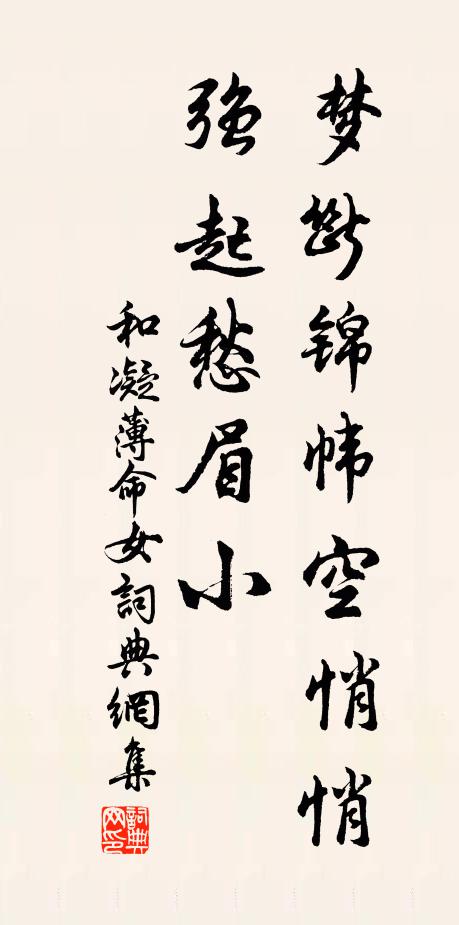 梦断锦帏空悄悄
强起愁眉小
和凝薄命女詞典網集
詞典網印